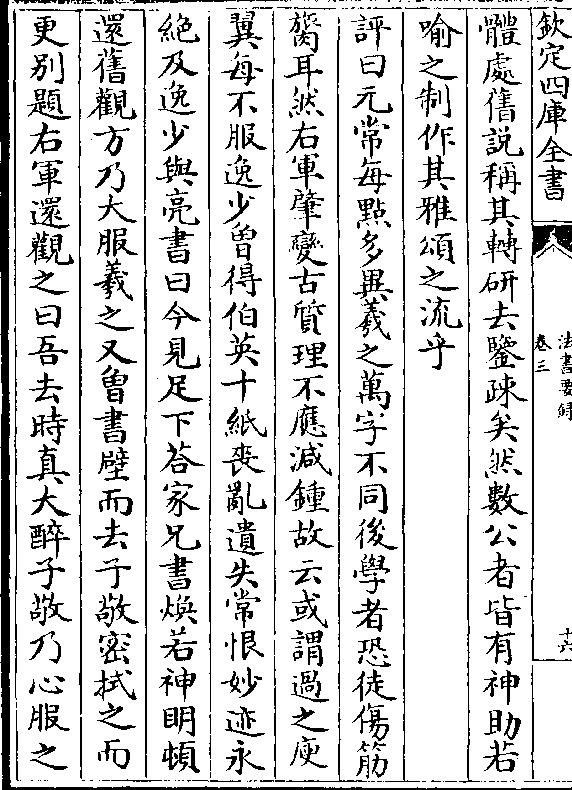 欽定四庫全書
法書要錄
卷三
十六
體處舊說稱其轉研去鑒疎矣然數公者皆有神助若
喻之制作其雅頌之流乎
評曰元常每點多異羲之萬字不同後學者恐徒傷筋
膂耳然右軍肇變古質理不應減鍾故云或謂過之庾
翼每不服逸少曾得伯英十紙喪亂遺失常恨妙迹永
絶及逸少與亮書曰今見足下荅家兄書煥若神明頓
還舊觀方乃大服羲之又曾書壁而去子敬密拭之而
更别題右軍還觀之曰吾去時真大醉子敬乃心服之